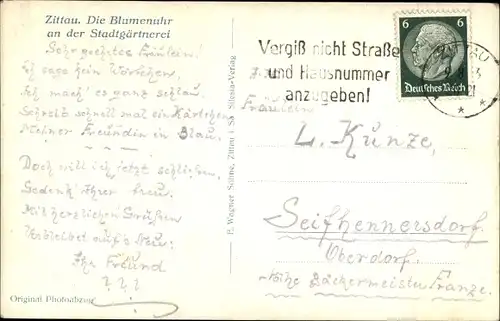 Zittau. Die Blumenuhr
an der Stadtgärtnerei
Sehr geehrtes Fräulein!
Ich sage kein Wörtchen,
Ich mach' es ganz schlau
Schreib schnell mal ein Kärtchen
Meiner Freundin in Blau.
Doch will ich jetzt schließen,
Gedenk' Ihrer treu.
Mit herzlichen Grüßen
Verbleibet auf's Neu:
Ihr Freund
? ? ?
Original Photoabzug
E. Wagner Söhne, Zittau i. Sa. Silesia-Verlag
Vergiß nicht Straße
und Hausnummer
anzugeben!
6 6
Deutsches Reich
ZITTAU
Fräulein
L. Kunze,
Seifhennersdorf
Oberdorf.
Nähe Bäckermeister Franze.